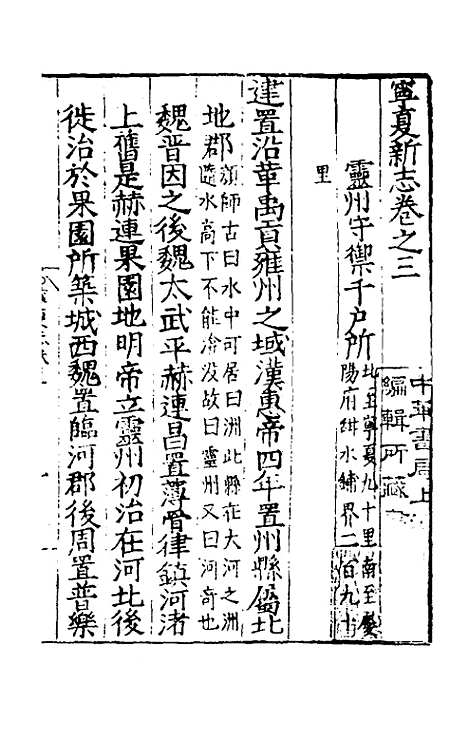 寧夏新志卷之三
中華書局上
編輯所藏
靈州守禦千戶所
北至寧夏九十里南至慶
陽府紺水鋪界二百九十
里
建置沿革禹貢雍州之域漢惠帝四年置州縣屬北
地郡
顏師古曰水中可居曰洲此縣在大河之洲
隨水高下不能渰沒故曰靈州又曰河奇也
魏晉因之後魏太武平赫連昌置薄骨律鎮河渚
上舊是赫連果園地明帝立靈州初治在河北後
徙治於果園所築城西魏置臨河郡後周置普樂